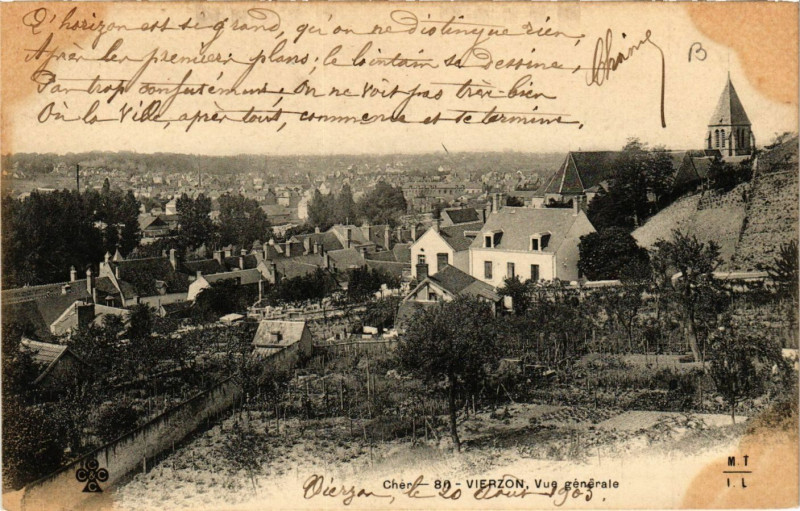 L'horizon est si grand, qu'on ne distingue rien,
Après les premiers plans; le lointain se dessine,
Par trop confusément. On ne voit pas très-bien
Où la Ville, après tout, commence et se termine.
B
Cher — 80 - VIERZON, Vue générale
M T
I. L
Vierzon, le 20 Août 1903.